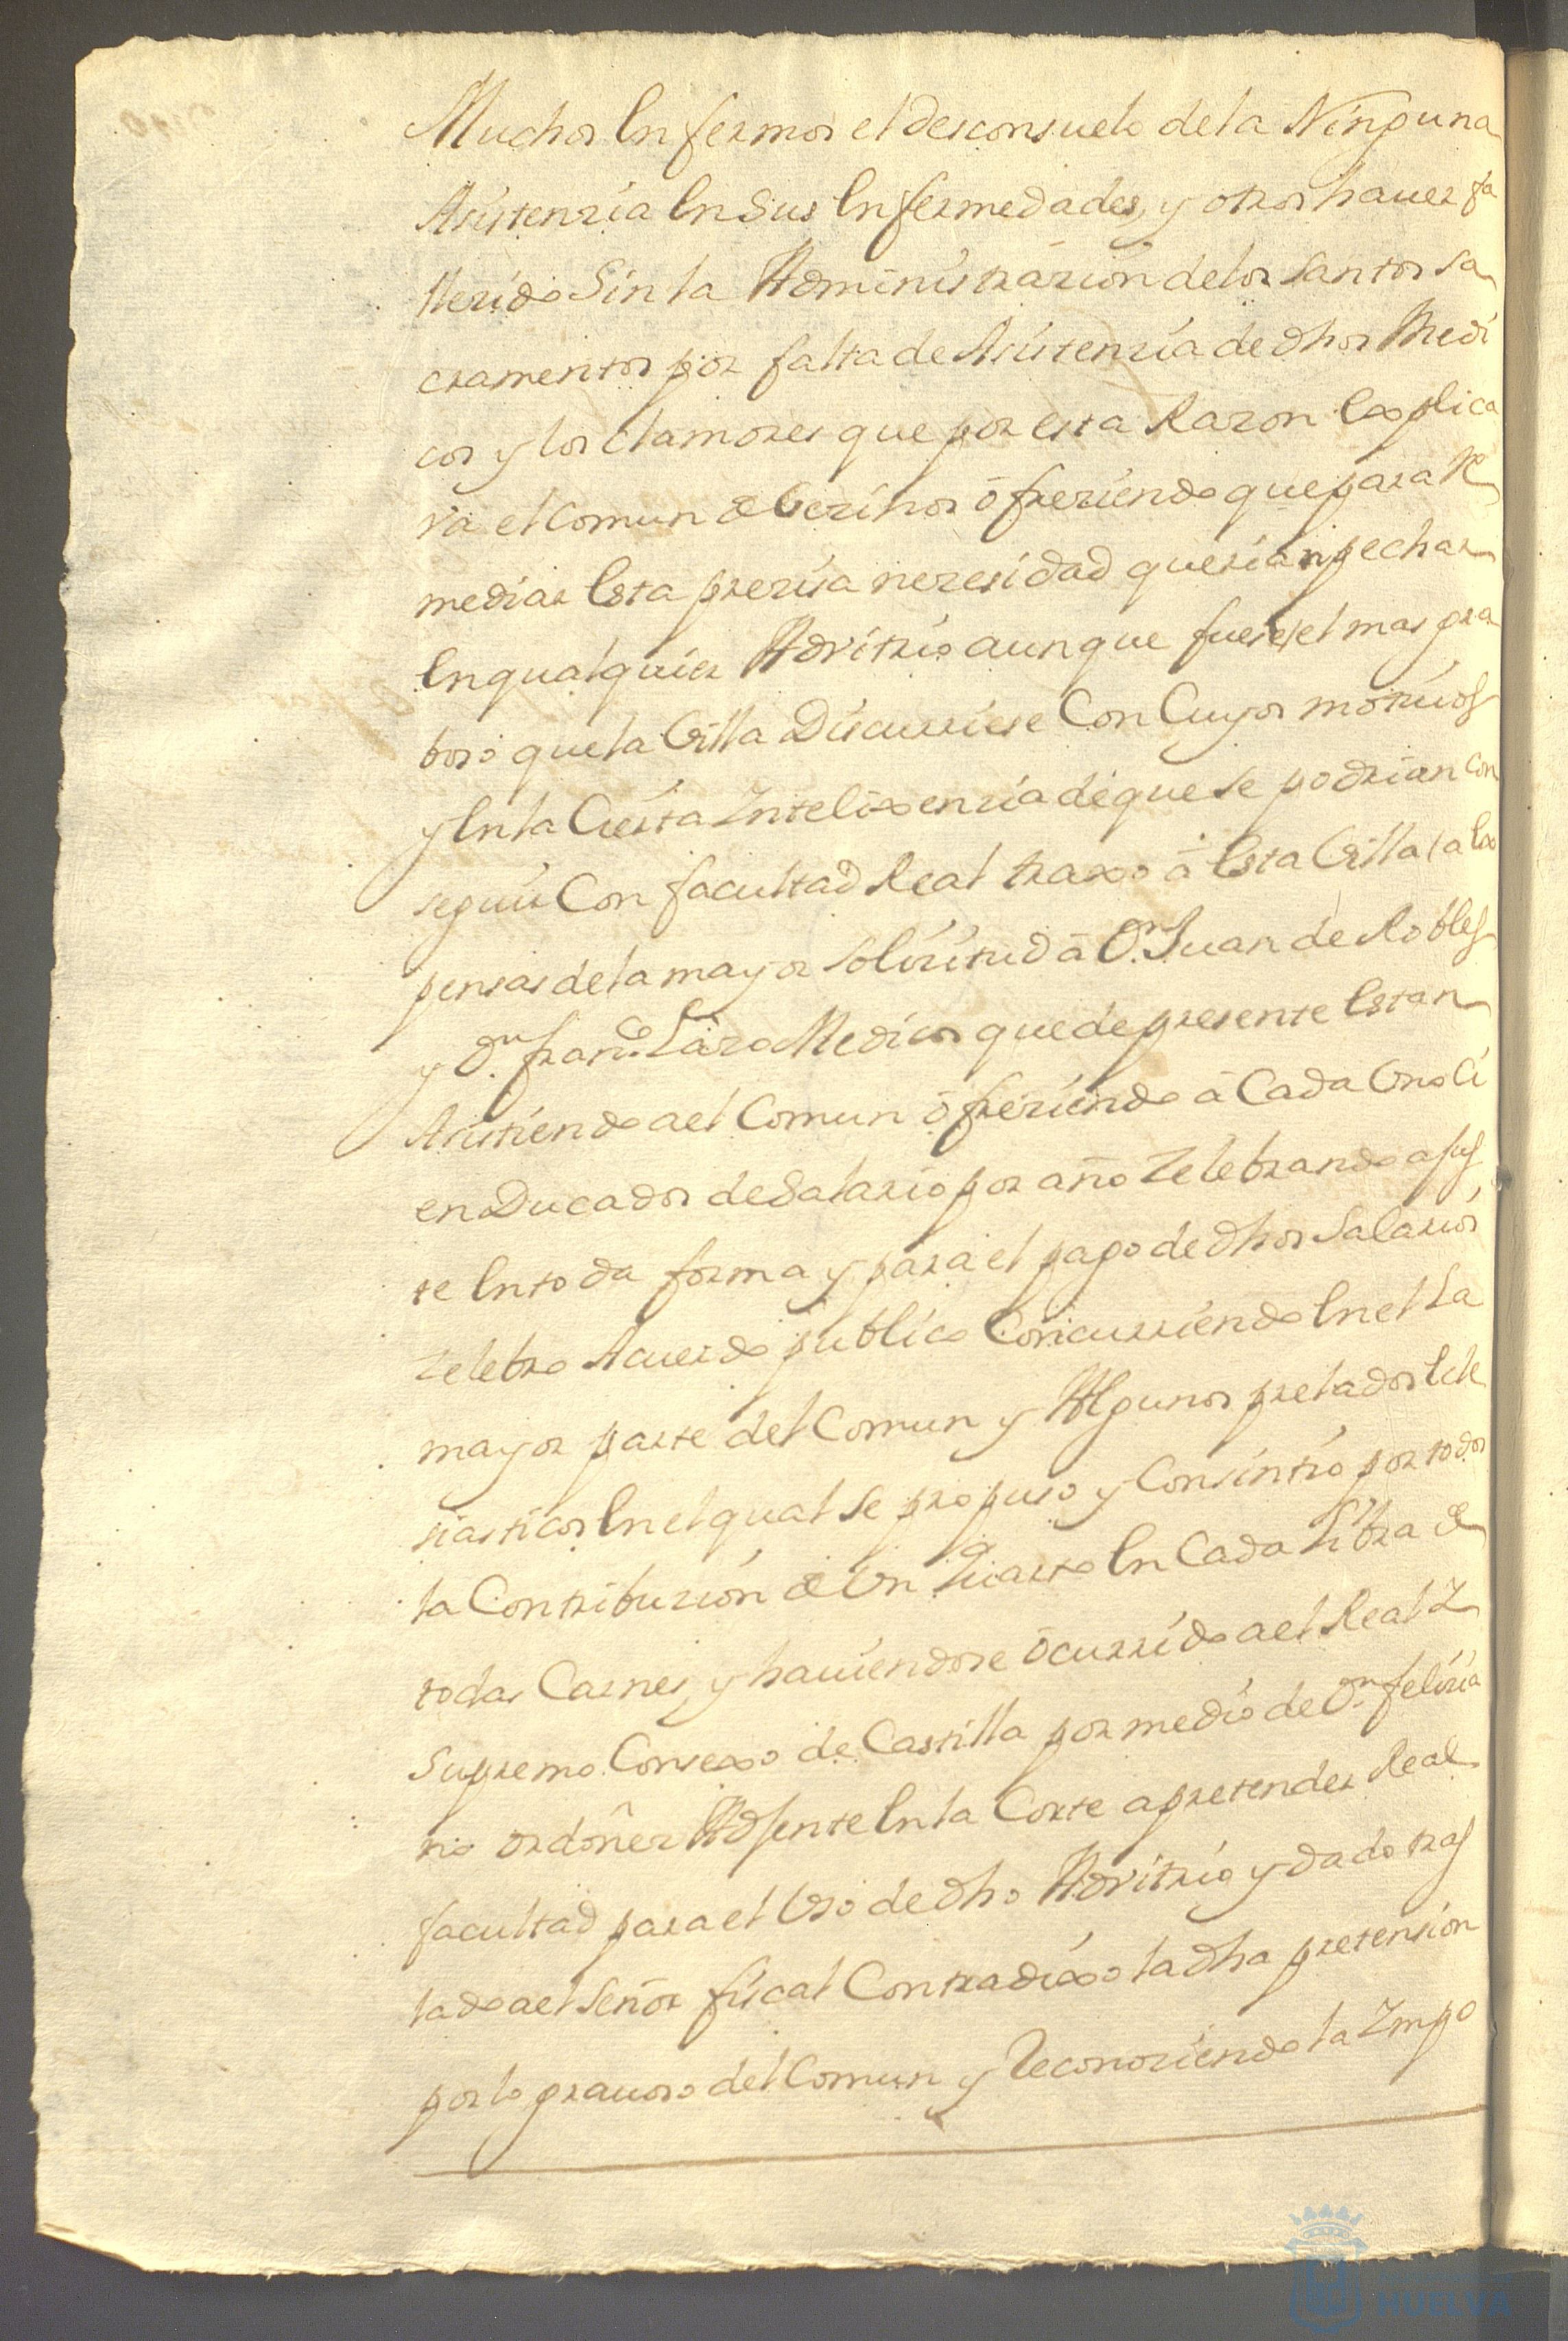 Muchos Enfermos el desconsuelo de la Ninguna
Asistenzia En Sus Enfermedades, y otros hauer fa
llezido Sin la Administrazion de los Santos Sa
cramentos por falta de Asistenzia de dhos Medi
cos y los clamores que por esta Razon Explica
va el comun de Vezinos ofreziendo que para Re
mediar Esta prezisa nezesidad querian pechar
En qualquier Advitrio aunque fuese el mas gra
boso que la Villa Discurriese Con Cuyos motiuos
y En la Cierta Intelixenzia de que se podrian con
seguir Con facultad Real traxo a Esta Villa a la Ex
pensas de la mayor Solizitud a Dn. Juan de Robles
y Dn. Franco. Lazo Medicos que de presente Estan
Asistiendo a el Comun ofreziendo a Cada Uno Ci
en Ducados de Salario por año Zelebrando ajus
te En toda forma y para el pago de dhos Salarios
Zelebro Acuerdo publico Concurriendo En el La
mayor parte del Comun y Algunos prelados Ecle
siasticos En el qual se propuso y Consintio por todos
la Contribuzion de Un quarto En Cada Libra de
todas Carnes, y hauiendose ocurrido a el Real I
Supremo Consexo de Castilla por medio de Dn. Felizia
no Ordoñez Ajente En la Corte a pretender Real
facultad para el Uso de dho Advitrio y dado tras
lado a el Señor fiscal Contradixo la dha pretension
por lo grauoso del Comun y Reconoziendo la Impo
HUELVA